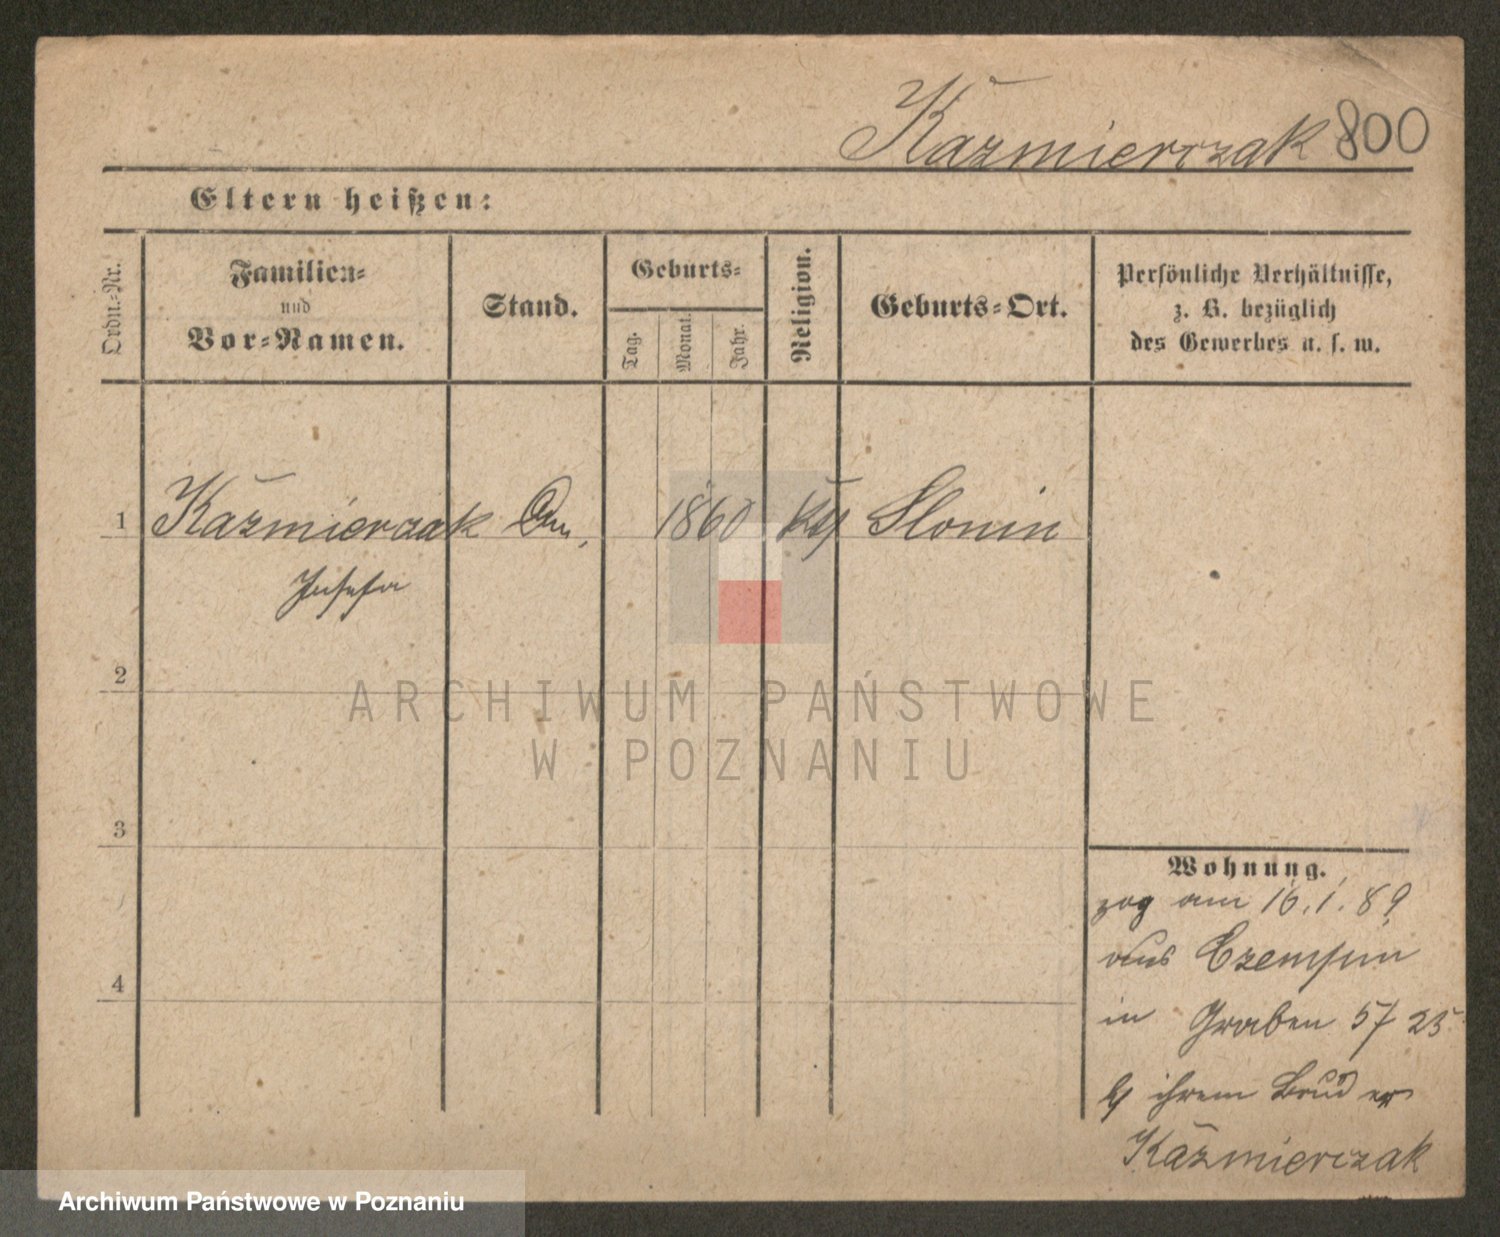 Kazmierczak 800
Eltern heißen:
Ordn.-Nr.
Familien-
und
Vor-Namen.
Stand.
Geburts-
Tag.
Monat.
Jahr.
Religion.
Geburts-Ort.
Persönliche Verhältnisse,
z. B. bezüglich
des Gewerbes u. s. w.
1 Kazmierczak 1860 Slonin
Josefa
2
3
4
Wohnung.
zog am 16.1.89
aus Czempin
in Graben 5/ 25
b/ ihrem Bruder
Kazmierczak
ARCHIWUM PAŃSTWOWE
W POZNANIU
Archiwum Państwowe w Poznaniu